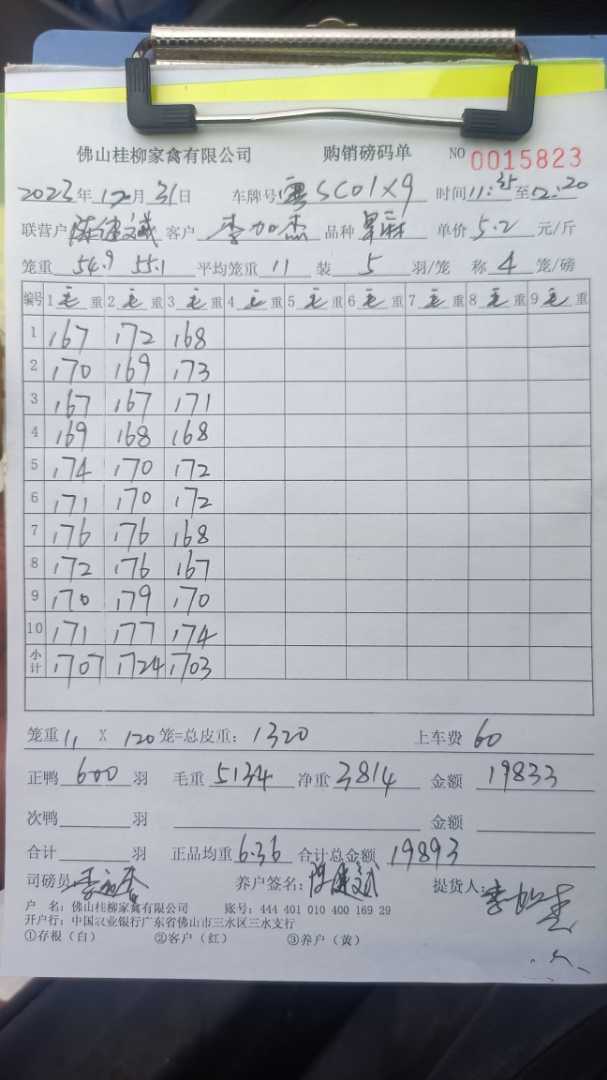 佛山桂柳家禽有限公司 购销磅码单 NO 0015823
2023年12月31日 车牌号 粤SC01X9 时间11:35至12:20
联营户 陈建文 客户 李加杰 品种 单价 5.2 元/斤
笼重 54.9 55.1 平均笼重 11 装 5 羽/笼 称 4 笼/磅
编号 1 毛 重 2 毛 重 3 毛 重 4 毛 重 5 毛 重 6 毛 重 7 毛 重 8 毛 重 9 毛 重
1 167 172 168
2 170 169 173
3 167 167 171
4 169 168 168
5 174 170 172
6 171 170 172
7 176 176 168
8 172 176 167
9 170 179 170
10 171 177 174
小计 1707 1724 1703
笼重 11 X 120 笼=总皮重: 1320 上车费 60
正鸭 600 羽 毛重 5134 净重 3814 金额 19833
次鸭 羽 金额
合计 羽 正品均重 6.36 合计总金额 19893
司磅员 养户签名: 提货人: 李加杰
户 名: 佛山桂柳家禽有限公司 账号: 444 401 010 400 169 29
开户行: 中国农业银行广东省佛山市三水区三水支行
①存根(白) ②客户(红) ③养户(黄)